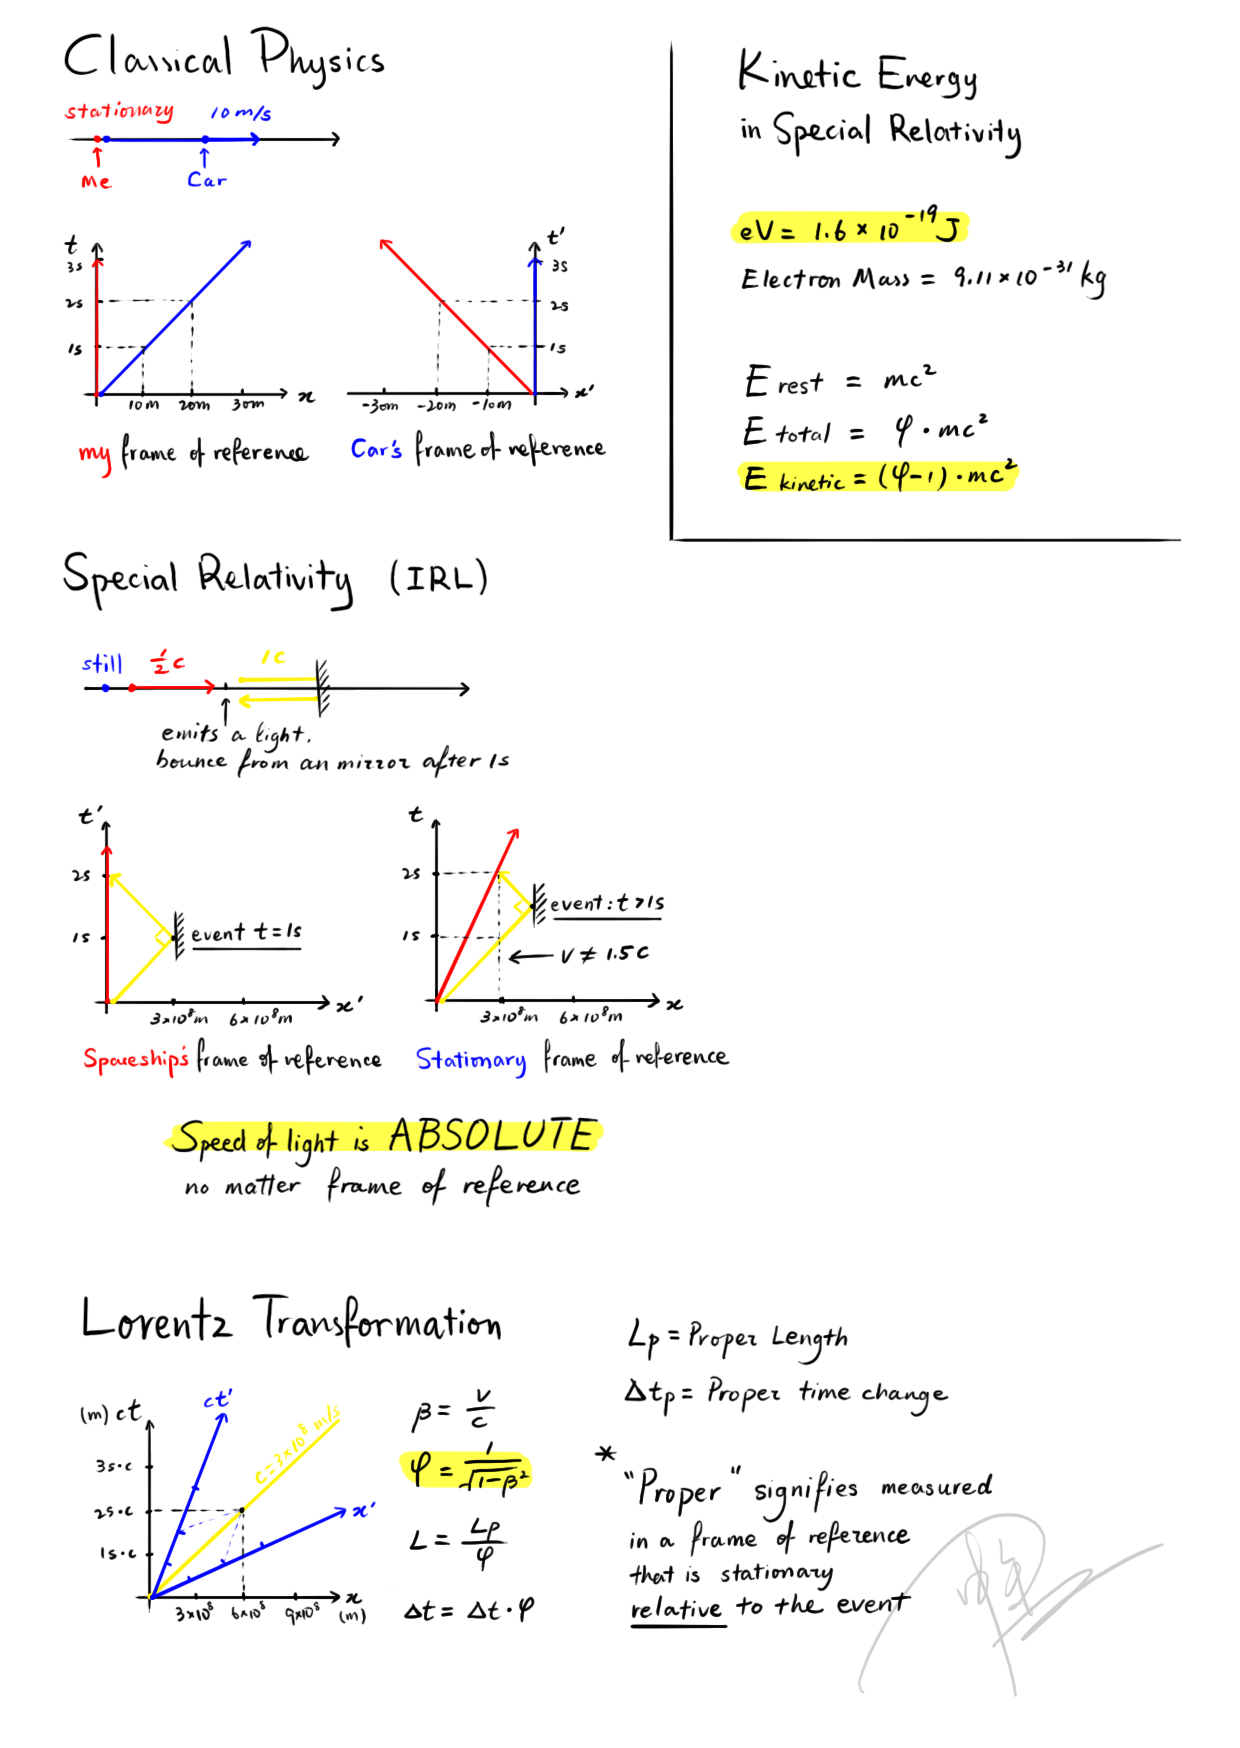 Classical Physics
stationary 10 m/s
Me Car
t
3s
2s
1s
10m 20m 30m x
my frame of reference
t'
3s
2s
1s
-30m -20m -10m x'
Car's frame of reference
Kinetic Energy
in Special Relativity
eV = 1.6 × 10⁻¹⁹ J
Electron Mass = 9.11 × 10⁻³¹ kg
E rest = mc²
E total = φ · mc²
E kinetic = (φ-1) · mc²
Special Relativity (IRL)
still ½c 1c
emits a light.
bounce from an mirror after 1s
t'
2s
1s
event t = 1s
3×10⁸m 6×10⁸m x'
Spaceship's frame of reference
t
2s
1s
event: t > 1s
v ≠ 1.5c
3×10⁸m 6×10⁸m x
Stationary frame of reference
Speed of light is ABSOLUTE
no matter frame of reference
Lorentz Transformation
(m) ct
ct'
c=3×10⁸ m/s
3s·c
2s·c
1s·c
x'
3×10⁸ 6×10⁸ 9×10⁸ x
(m)
β = v/c
φ = 1/√(1-β²)
L = Lp/φ
Δt = Δt · φ
Lp = Proper Length
Δtp = Proper time change
*
"Proper" signifies measured
in a frame of reference
that is stationary
relative to the event